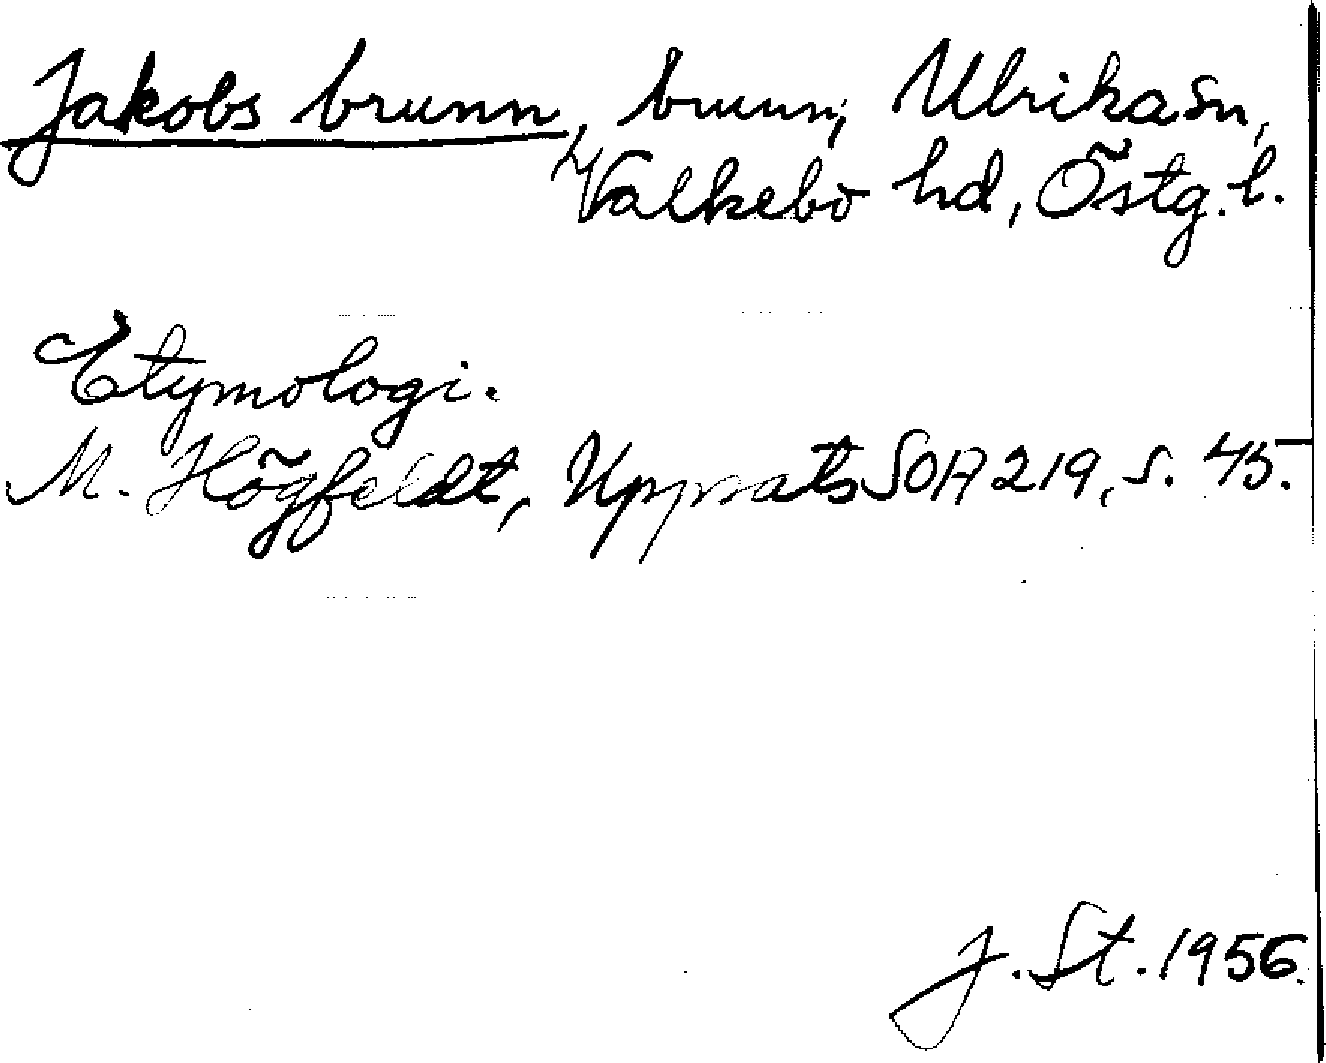 Jakobs brunn, brunn, Ulrika sn,
Valkebo hd, Östg. l.
Etymologi.
M. Högfeldt, Uppsats SOA 219, s. 45.
J. St. 1956.